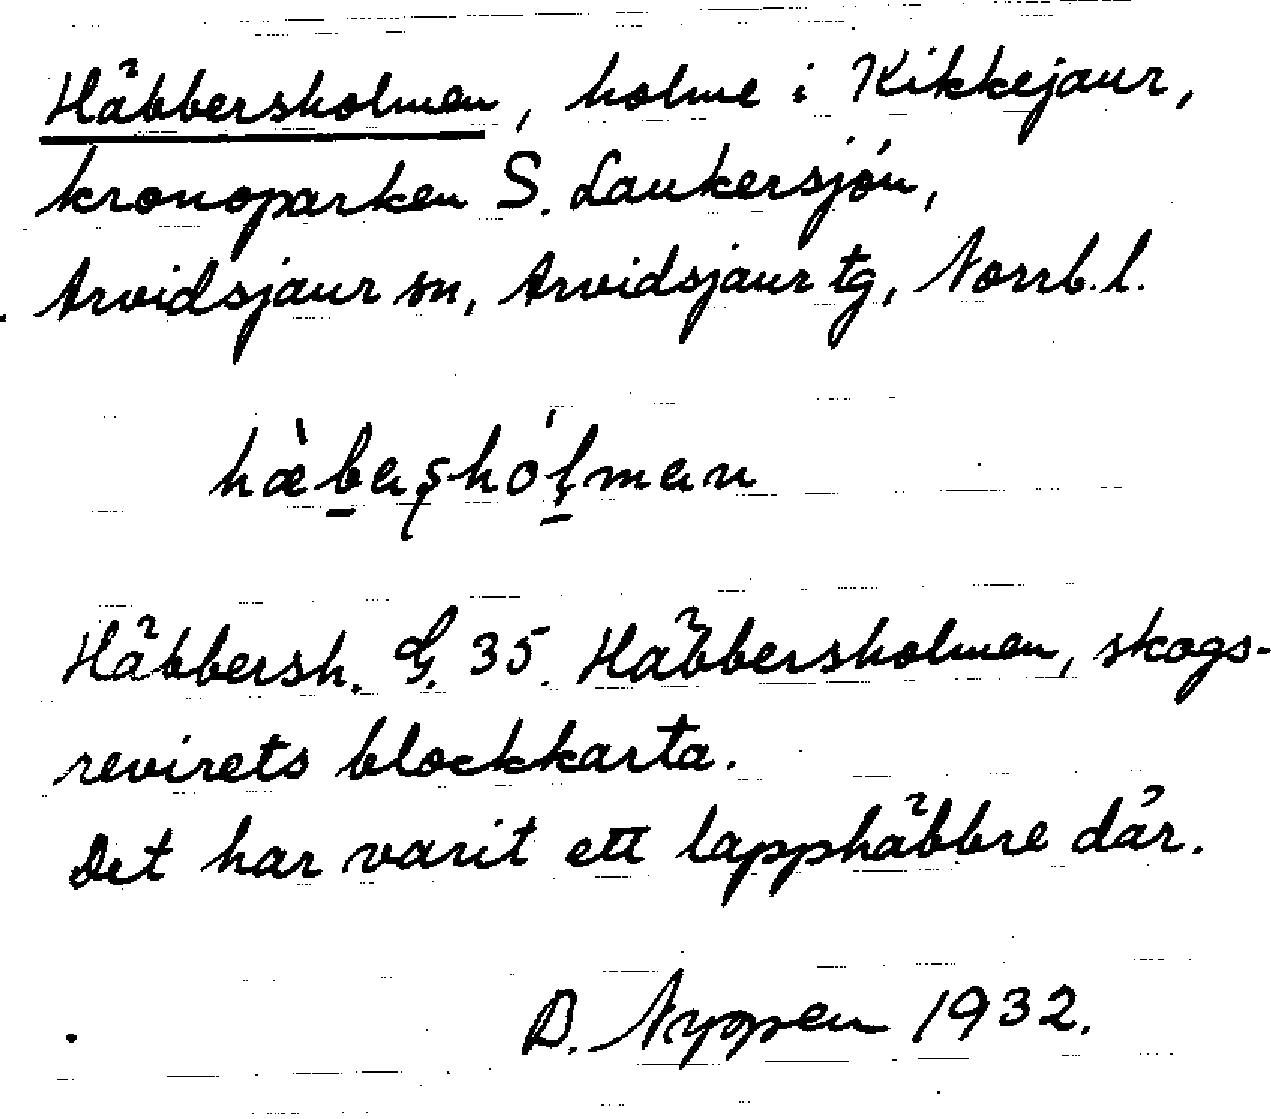 Häbbersholmen, holme i Kikkejaur,
kronoparken S. Laukersjön,
Arvidsjaur sn, Arvidsjaur tg, Norrb. l.
hæ̀baʂhól̥man
Häbbersh. G. 35. Häbbersholmen, skogs-
revirets blockkarta.
Det har varit ett lapphäbbre där.
D. Nyppen 1932.